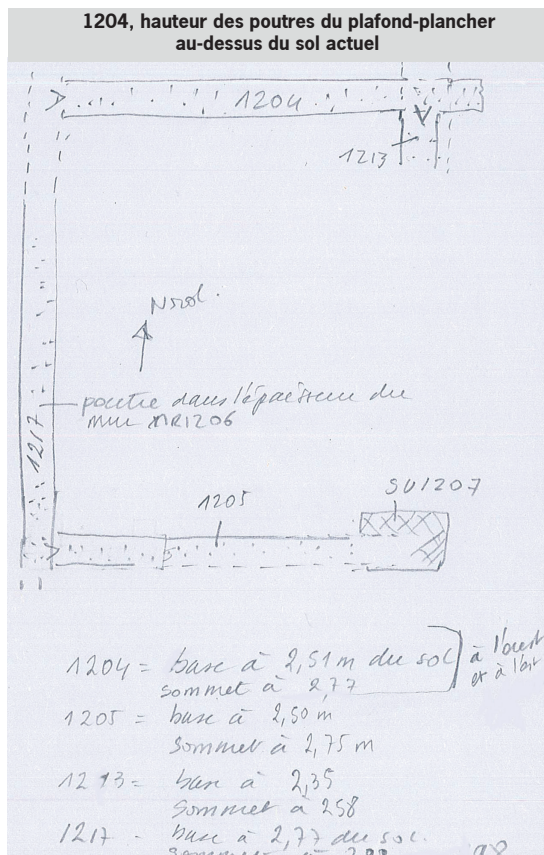 1204, hauteur des poutres du plafond-plancher
au-dessus du sol actuel
1204
1213
Nsol.
poutre dans l'épaisseur du
mur MR1206
1217
1205
SU1207
1204 = base à 2,51 m du sol
sommet à 2,77
à l'ouest
et à l'est
1205 = base à 2,50 m
sommet à 2,75 m
1213 = base à 2,35
sommet à 258
1217 - base à 2,77 du sol.
sommet à